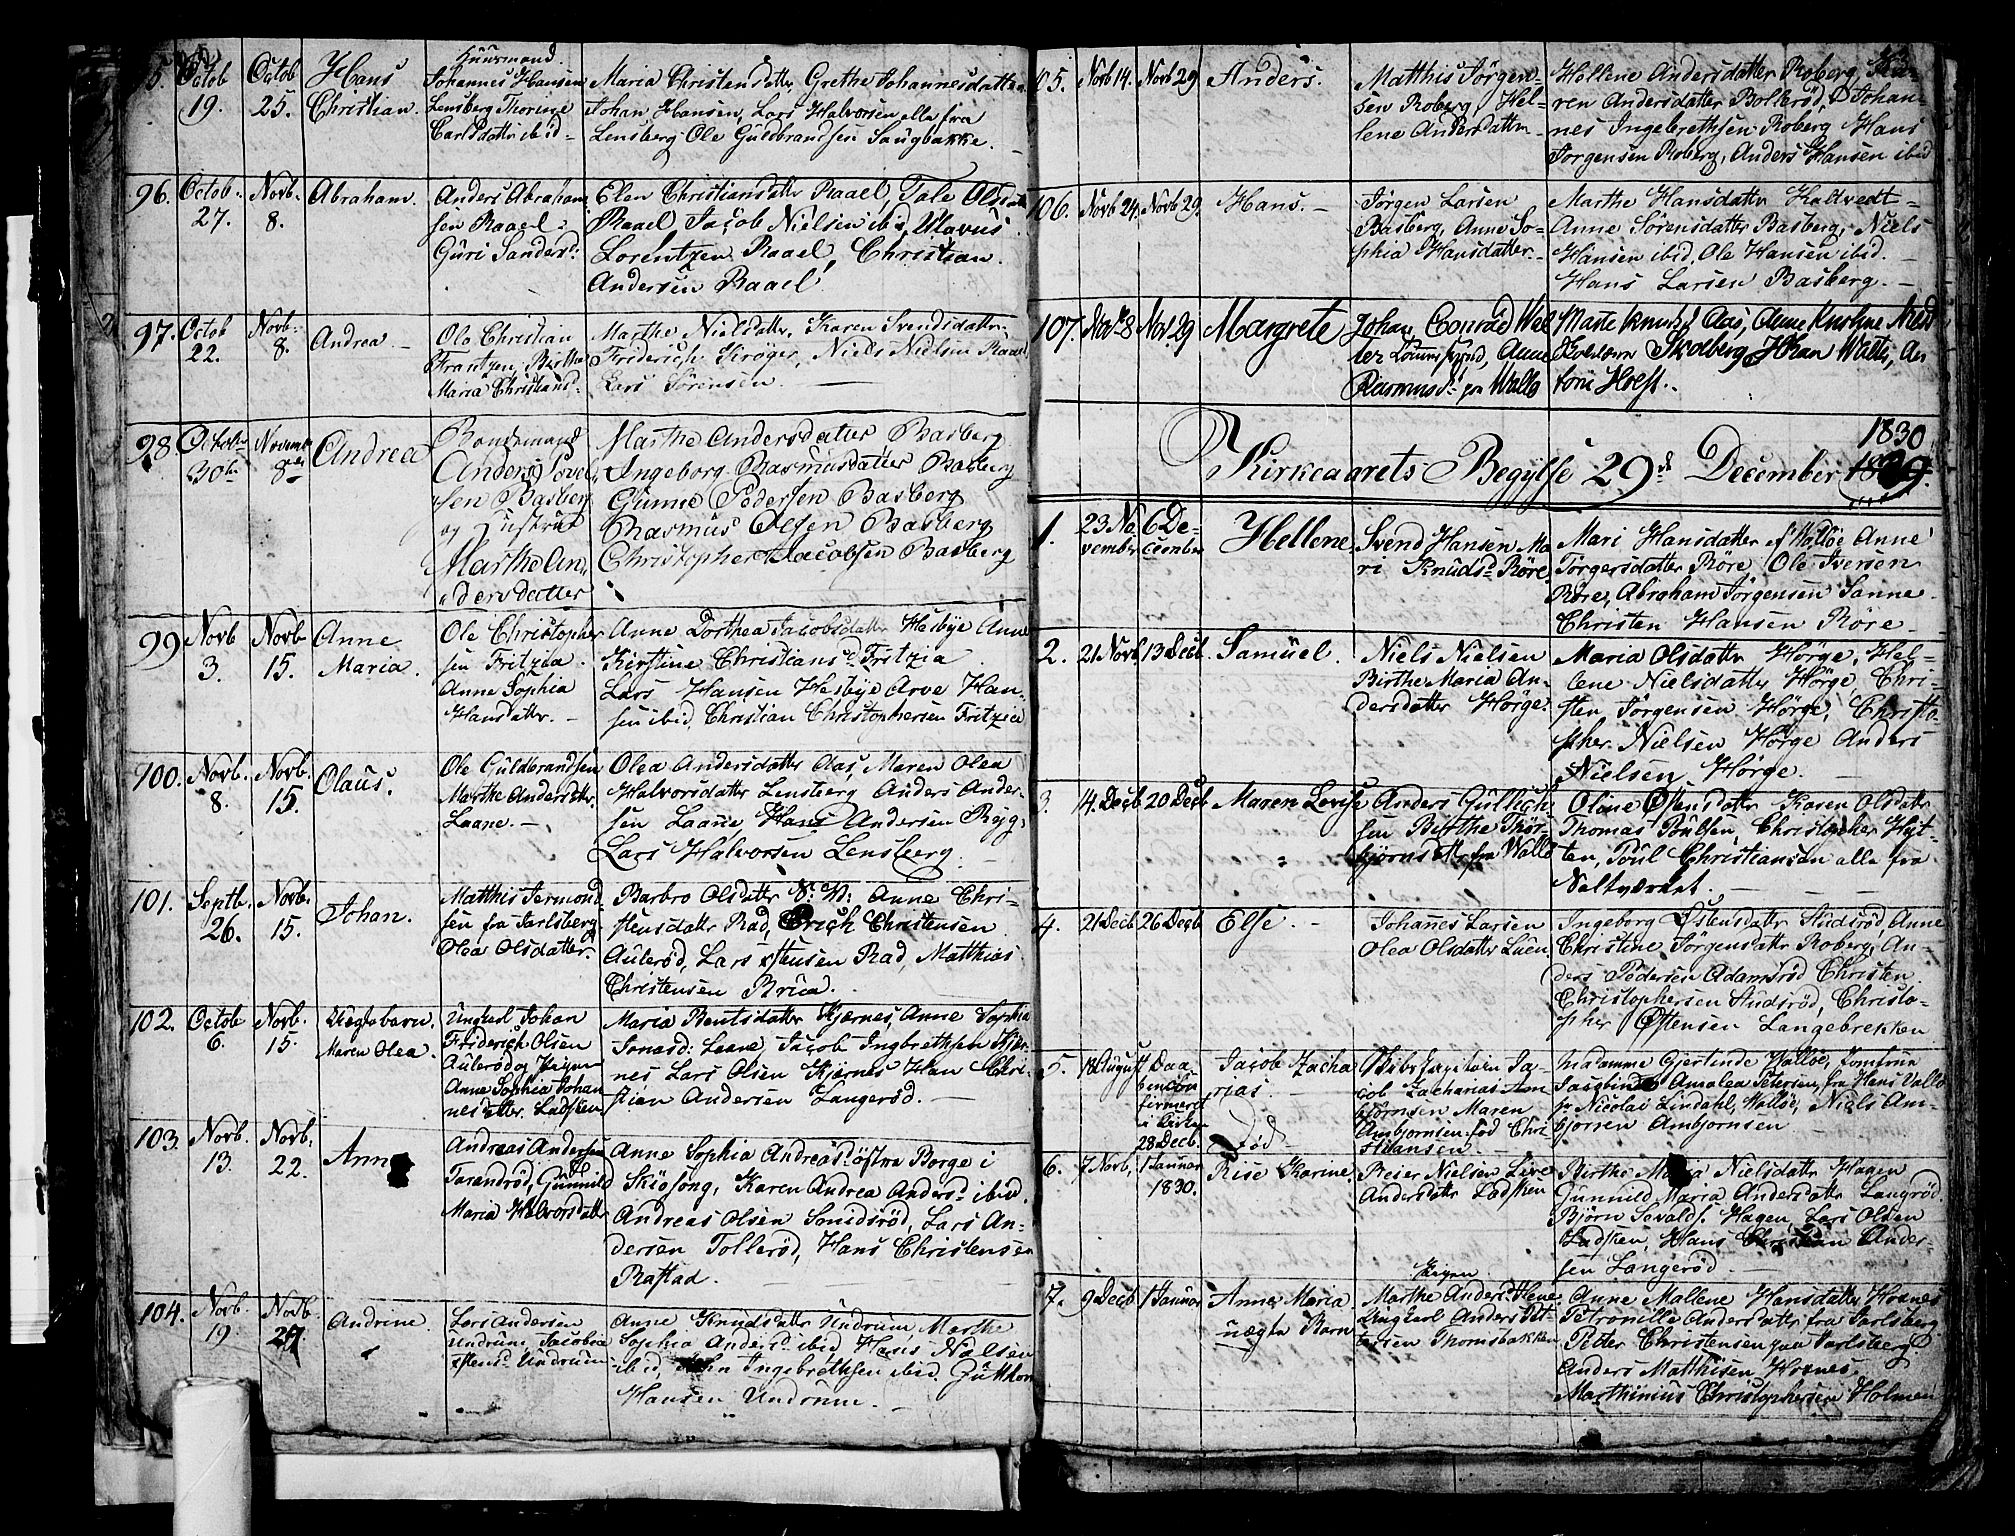 95. Octob 19. Octob 25. Hans Christian.
Huusmand
Johannes Hansen
Lensberg Thorine
Carlsdattr ibid
Maria Christensdatter, Grethe Johannesdatter
Johan Hansen, Lars Halvorsen alle fra
Lensberg Ole Guldbrandsen Saugbakke.
96. Octob. 27. Novb. 8. Abraham.
Anders Abraham
sen Raael
Guri Sandersd:
Elen Christiansdatter Raael, Tale Olsd
Raael Jacob Nielsen ibid, Olavus
Lorentzen Raael, Christian
Andersen Raael
97. Octob 22. Novb. 8. Andrea.
Ole Christian
Frantzen, Birthe
Maria Christiansd:
Marthe Nielsdatter, Karen Svendsdatter
Friderich Krøger, Niels Nielsen Raael
Lars Sørensen
98 October 30te November 8de Andrea
Bondemand
Anders Povel
sen Basberg
og Hustrue
Marthe An
dersdatter
Marthe Andersdatter Basberg
Ingeborg Rasmusdatter Basberg
Gunne Pedersen Basberg
Rasmus Olsen Basberg
Christopher Jacobsen Basberg
99 Novb 3. Novb 15. Anne Maria.
Ole Christopher
sen Fritzia
Anne Sophia
Hansdattr.
Anne Dorthea Jacobsdatter Hesbye Anne
Kirstine Christiansd. Fritzia
Lars Hansen Hesbye Arve Han-
sen ibid, Christian Christophersen Fritzia
100. Novb. 8. Novb. 15. Olaus.
Ole Guldbrandsen
Marthe Andersdatter
Laane.
Olea Andersdatter Aas, Maren Olea
Halvorsdatter Lensberg Anders Ander-
sen Laane Hans Andersen Ryg,
Lars Halvorsen Lensberg.
101. Septb. 26. Novb. 15. Johan.
Matthis Jermond
sen fra Jarlsberg
Olea Olsdatter.
Barbro Olsdatter N: N: Anne Chri-
stensdattr Rad, Erich Christensen
Aulerød, Lars Østensen Rad, Matthias
Christensen Bruea.
102. Octob 6. Novb. 15. Uægtebarn. Maren Olea.
Ungkarl Johan
Friderich Olsen
Aulerød og Pigen
Anne Sophia Johan
nesdatter. Ladsken
Maria Bentsdatter Kjærnes, Anne Sophia
Jonasd: Laane, Jacob Ingbrethsen Kjær
nes Lars Olsen Kjærnes Han Chri-
stian Andersen Langerød.
103. Novb. 13. Novb. 22. Anne
Andreas Andersen
Tarandrød, Gunnild
Maria Halvorsdatter
Anne Sophia Andreasd: østre Borge i
Skiøsong, Karen Andrea Andersd: ibid
Andreas Olsen Smidsrød, Lars An-
dersen Tollerød, Hans Christensen
Rastad.
104. Novb. 19 Novb 29 Andrine.
Lars Andersen
Undrum, Jacobea
Østensd: Undrum
Anne Knudsdatter Undrum Marthe
Sophia Andersd: ibid Hans Nielsen
ibid, Ingebrethsen ibid, Gutthor
Hansen Undrum.
105. Novb 14. Novb 29 Anders.
Matthis Jørgen-
sen Roberg Hel-
lene Andersdatter
Hellene Andersdatter Roberg, Ka-
ren Andersdatter Bollerød, Johan-
nes Ingebrethsen Roberg Hans
Jørgensen Roberg, Anders Hansen ibid
106. Novb 24. Novb 29. Hans.
Jørgen Larsen
Basberg, Anne So-
phia Hansdatter.
Marthe Hansdatter Kaldvedt
Anne Sørensdatter Basberg, Niels
Hansen ibid, Ole Hansen ibid.
Hans Larsen Basberg.
107. Nov 8 Nov 29 Margrete
Johan Conrad Wal
ter Anne
Rasmusd: paa Wallø
Marte Knutsd Aas, Anne Kirstine
Skolberg, Johan Walter, An
toni Hoest.
1830
Kirkeaarets Begynelse 29de December 1829.
1. 23 No vember 6 De- cember Hellene
Svend Hansen Ma
ri Knudsd. Røre
Mari Hansdatter af Walløe Anne
Jørgersdatter Røre, Ole Iversen
Røre, Abraham Jørgensen Sanne
Christen Hansen Røre
2. 21 Novb 13 Decb. Samuel.
Niels Nielsen
Birthe Maria An-
dersdatter Hørge.
Maria Olsdatter Hørge, Hel-
lene Nielsdatter Hørge, Chri-
sten Jørgensen Hørge, Christo-
pher Nielsen Hørge Anders
Nielsen Hørge.
3. 14. Decb 20 Decb Maren Lovise
Anders Gullich
sen Birthe Thor-
bjørnsdttr fra Wallø
Oline Olsensdatter Karen Olsdattr
Thomas Poulsen, Christopher Hyt-
ten, Poul Christiansen alle fra
Saltværket.
4. 21 Decb 26 Decb Else.
Johannes Larsen
Olea Olsdatter Luen
Ingeborg Østensdattr Studsrød, Anne
Christine Jørgensdattr Roberg, An-
ders Pedersen Adamsrød Christen
Christophersen Studsrød, Christo-
pher Østensen Langebrekken
5. 18 August Daa ben con firmeret i Kirken 28 Decb.
Jacob Zacha
rias.
Død
Skibs Capitain Ja-
cob Zacharias Am
bjørnsen Maren
Ambjørnsen fød Chri
stiansen.
Madamme Gjertinde Walløe, Jomfrue
Jacobinde Amalea Petersen, fra Hans Wallø
Nicolai Lindahl, Walløe, Niels Am-
bjørsen Ambjørnsen
6. 7 Novb, 1 Januar 1830. Rise Karine.
Peder Nielsen Live
Andersdatter Ladsken
Birthe Maria Nielsdattr Hagen
Gunnild Maria Andersdattr Langrød
Bjørn Sevalds. Hagen, Lars Olsen
Ladsken, Hans Christian Ander-
sen Langerød
7. 9 Decb 1 Januar Anne Maria uægte Barn
Pigen
Marthe Andersd: Hene
Ungkarl Anders Pet-
tersen Thomsbakken
Anne Mallene Hansdatter Hoxnes
Petronille Andersdatter fra Jarlsberg
Petter Christensen paa Jarlsberg.
Anders Matthisen Hoxnes.
Marthinius Christophersen Holmen